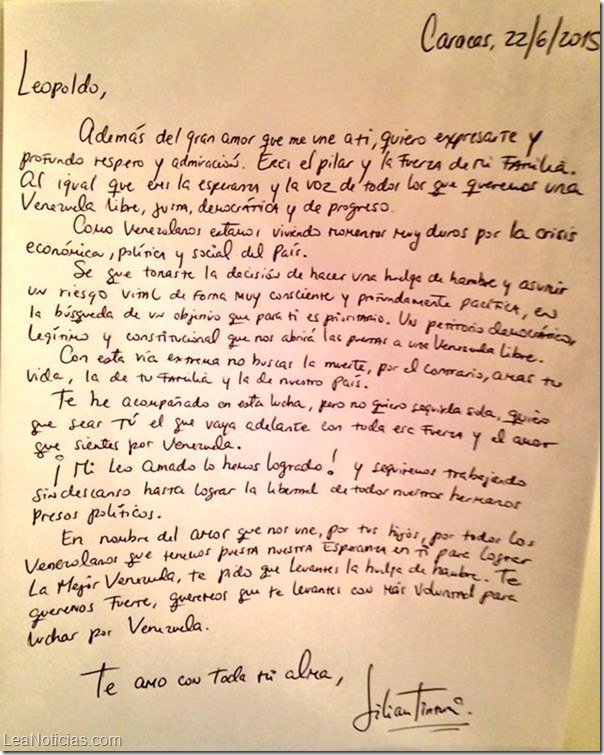 Caracas, 22/6/2015
Leopoldo,
Además del gran amor que me une a ti, quiero expresarte y
profundo respeto y admiración. Eres el pilar y la Fuerza de mi FAMILIA.
Al igual que eres la esperanza y la voz de todos los que queremos una
Venezuela libre, justa, democrática y de progreso.
Como Venezolanos estamos viviendo momentos muy duros por la crisis
económica, política y social del País.
Se que tomaste la decisión de hacer una huelga de hambre y asumir
un riesgo vital de forma muy consciente y profundamente pacífica, en
la búsqueda de un objetivo que para ti es prioritario. Un petitorio democrático,
legítimo y constitucional que nos abrirá las puertas a una Venezuela libre.
Con esta vía extrema no buscas la muerte, por el contrario, amas tu
vida, la de tu Familia y la de nuestro País.
Te he acompañado en esta lucha, pero no quiero seguirla sola, quiero
que seas TÚ el que vaya adelante con toda esa Fuerza y el amor
que sientes por Venezuela.
¡Mi Leo Amado lo hemos logrado! y seguiremos trabajando
sin descanso hasta lograr la libertad de todos nuestros hermanos
presos políticos.
En nombre del amor que nos une, por tus hijos, por todos los
Venezolanos que tenemos puesta nuestra Esperanza en ti para lograr
La Mejor Venezuela, te pido que levantes la huelga de hambre. Te
queremos Fuerte, queremos que te levantes con más voluntad para
luchar por Venezuela.
Te amo con toda mi alma,
Lilian Tintori.
LeaNoticias.com